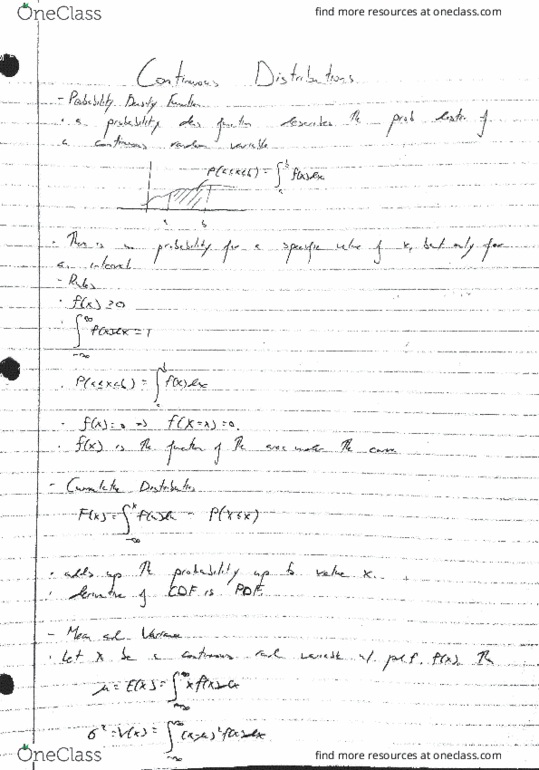 OneClass
find more resources at oneclass.com
Continuous Distributions
- Probability Density Function
· a probability den function describes the prob distr of
a continuous random variable
P(a<x<b) = ∫_a^b f(x)dx
a b
· There is no probability for a specific value of x, but only for
an interval
- Rules
· f(x) ≥ 0
· ∫_-∞^∞ f(x)dx = 1
· P(a<x<b) = ∫_a^b f(x)dx
· f(x)=0 → f(X=x)=0.
· f(x) is the function of the area under the curve
- Cumulative Distribution
F(x) = ∫_-∞^x f(x)dx - P(X≤x)
· adds up the probability up to value x.
· derivative of CDF is PDF
- Mean and Variance
· Let X be a continuous rand variable w/. pdf. f(x). Th
μ = E(x) = ∫_-∞^∞ x f(x)dx
σ² = V(x) = ∫_-∞^∞ (x-μ)² f(x)dx
OneClass
find more resources at oneclass.com